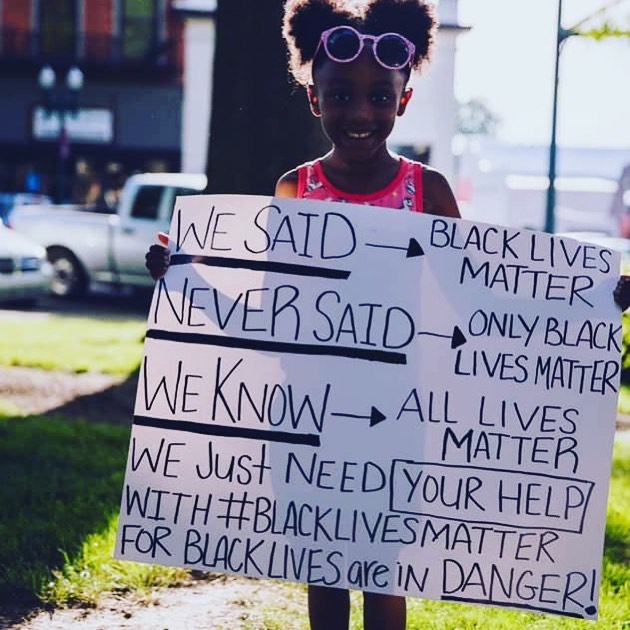 WE SAID → BLACK LIVES
MATTER
NEVER SAID → ONLY BLACK
LIVES MATTER
WE KNOW → ALL LIVES
MATTER
WE Just NEED YOUR HELP
WITH #BLACKLIVESMATTER
FOR BLACK LIVES are iN DANGER!